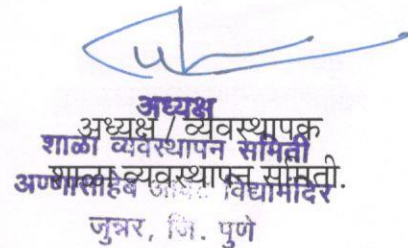 अध्यक्ष
अध्यक्ष / व्यवस्थापक
शाळा व्यवस्थापन समिती
शाळा व्यवस्थापन समिती.
अण्णासाहेब आवटे विद्यामंदिर
जुन्नर, जि. पुणे